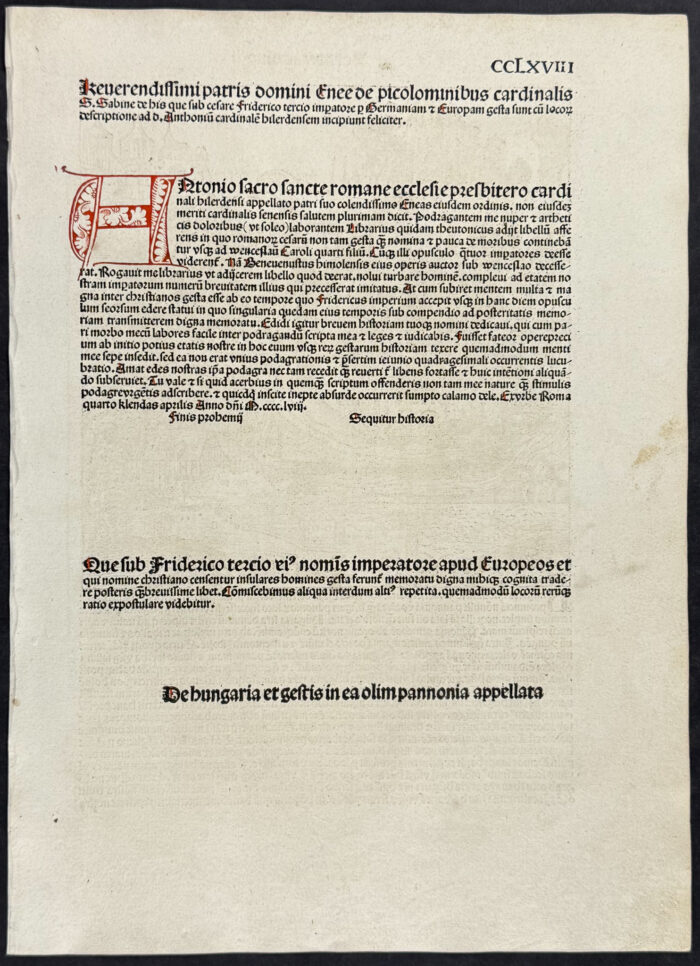 CCLXVIII
Reuerendissimi patris domini Enee de picolominibus cardinalis
S. Sabine de his que sub cesare Friderico tercio impatore ꝑ Germaniam ⁊ Europam gesta sunt cū locoꝝ
descriptione ad d. Anthoniū cardinalē hilerdensem incipiunt feliciter.
ANtonio sacro sancte romane ecclesie presbitero cardi
nali hilerdensi appellato patri suo colendissimo Eneas eiusdem ordinis. non eiusdeꝫ
meriti cardinalis senensis salutem plurimam dicit. Podragantem me nuper ⁊ artheti
cis doloribus (vt soleo) laborantem Librarius quidam theutonicus adijt libellū affe
rens in quo romanoꝝ cesarū non tam gesta ꝙ̄ nomina ⁊ pauca de moribus continebā
tur vsqꝫ ad wenceslaū Caroli quarti filiū. Cūqꝫ illi opusculo q̄tuor impatores deesse
viderent᷑. Nā Beneuenustus himolensis eius operis auctor sub wenceslao decesse-
rat. Rogauit me librarius vt adijcerem libello quod deerat. nolui turbare hominē. compleui ad etatem no
stram impatorum numerū breuitatem illius qui precesserat imitatus. At cum subiret mentem multa ⁊ ma
gna inter christianos gesta esse ab eo tempore quo Fridericus imperium accepit vsqꝫ in hanc diem opuscu
lum seorsum edere statui in quo singularia quedam eius temporis sub compendio ad posteritatis memo-
riam transmitterem digna memoratu. Edidi igitur breuem historiam tuoqꝫ nomini dedicaui. qui cum pa-
ri morbo mecū labores facile inter podragandū scripta mea ⁊ leges ⁊ iudicabis. Fuisset fateor operepreci
um ab initio potius etatis nostre in hoc euum vsqꝫ reꝝ gestarum historiam texere quemadmodum menti
mee sepe insedit. sed ea non erat vnius podagrationis ⁊ p̄sertim ieiunio quadragesimali occurrentis lucu-
bratio. Amat edes nostras ip̄a podagra nec tam recedit ꝙ̄ reuerti᷑ libens fortasse ⁊ huic intētioni aliquā-
do subseruiet. Tu vale ⁊ si quid acerbius in quemqꝫ scriptum offenderis non tam mee nature ꝙ̄ stimulis
podagre vrgētis adscribere. ⁊ quicdqꝫ inscite inepte absurde occurrerit sumpto calamo dele. Ex vrbe Roma
quarto klendas aprilis Anno dn̄i M.cccc.lviij.
Finis prohemij Sequitur historia
Que sub Friderico tercio eiꝰ nomīs imperatore apud Europeos et
qui nomine christiano censentur insulares homines gesta ferunt᷑ memoratu digna mihiqꝫ cognita trade-
re posteris ꝙ̄breuissime libet. Cōmiscebimus aliqua interdum altiꝰ repetita. quemadmodū locorū rerūqꝫ
ratio expostulare videbitur.
De hungaria et gestis in ea olim pannonia appellata